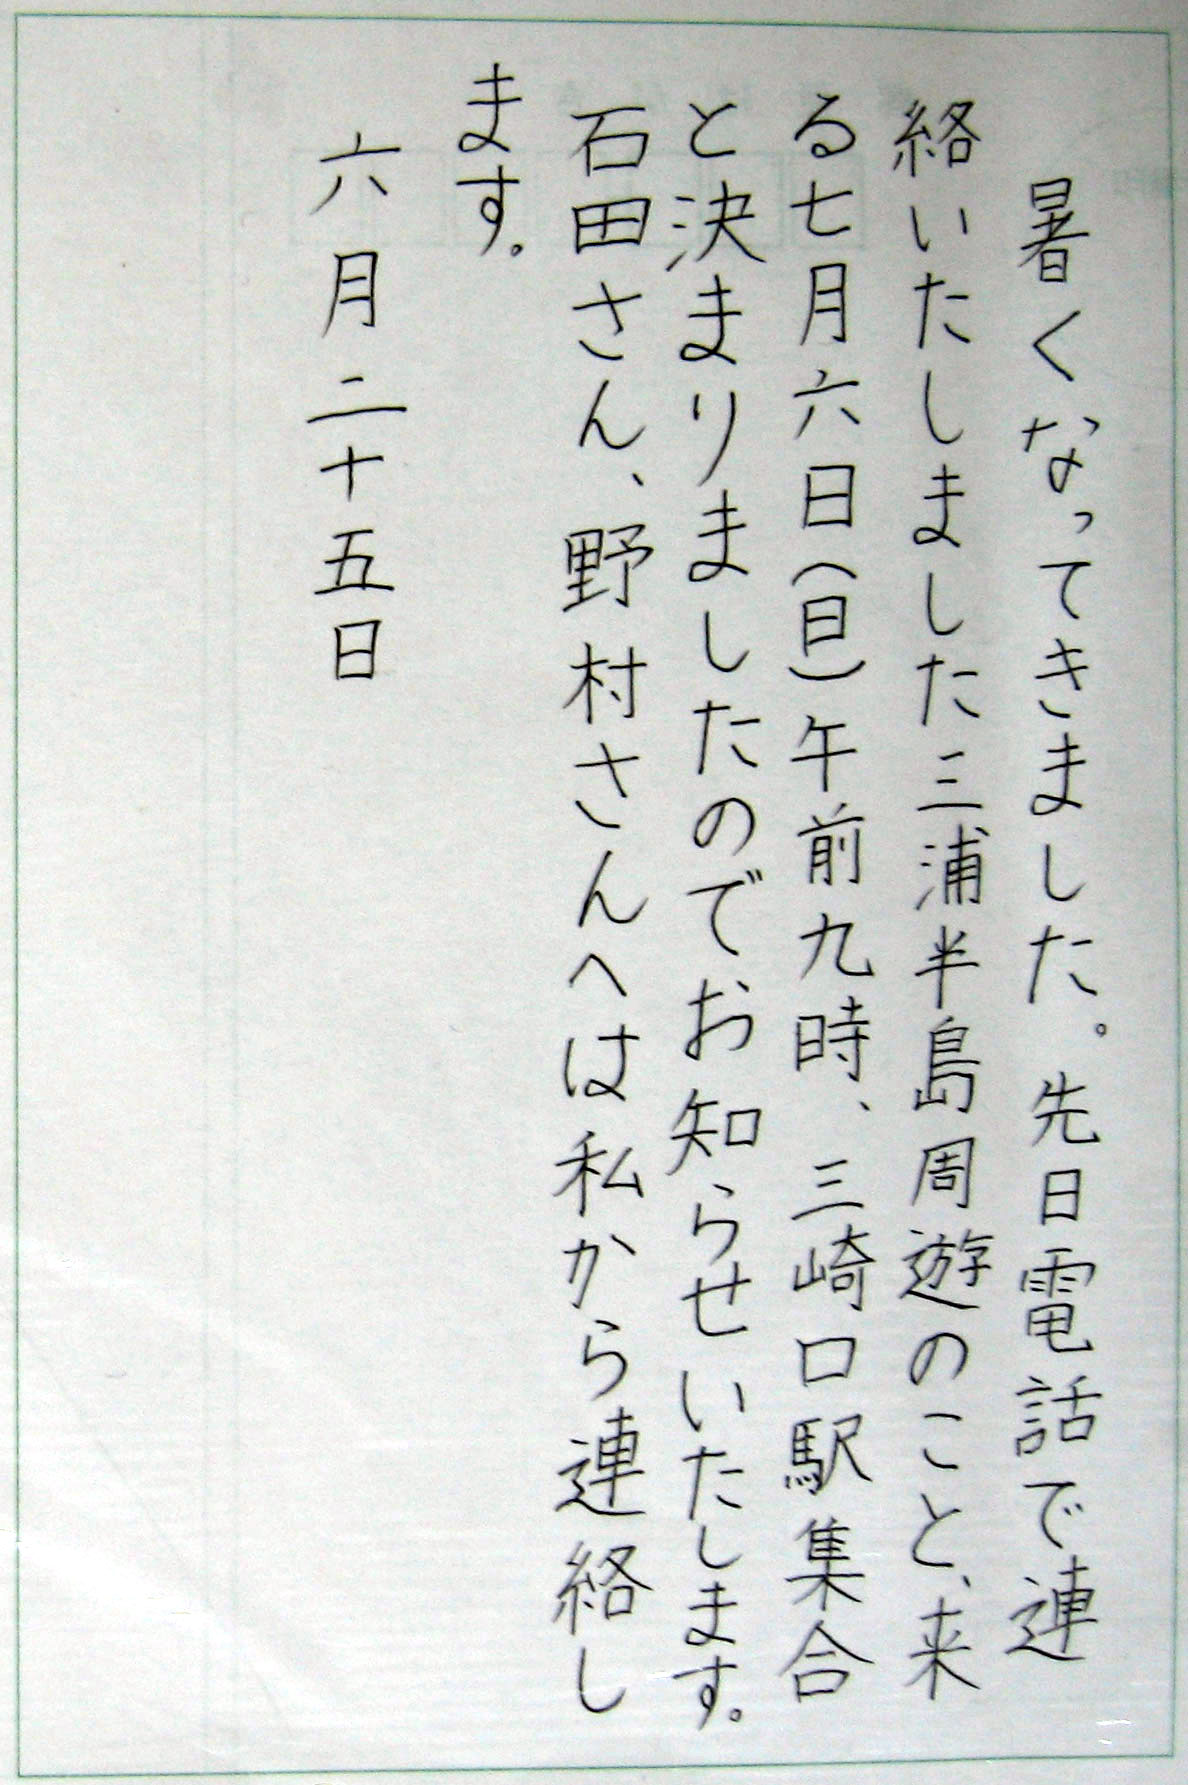 暑くなってきました。先日電話で連
絡いたしました三浦半島周遊のこと、来
る七月六日(日)午前九時、三崎口駅集合
と決まりましたのでお知らせいたします。
石田さん、野村さんへは私から連絡し
ます。
六月二十五日